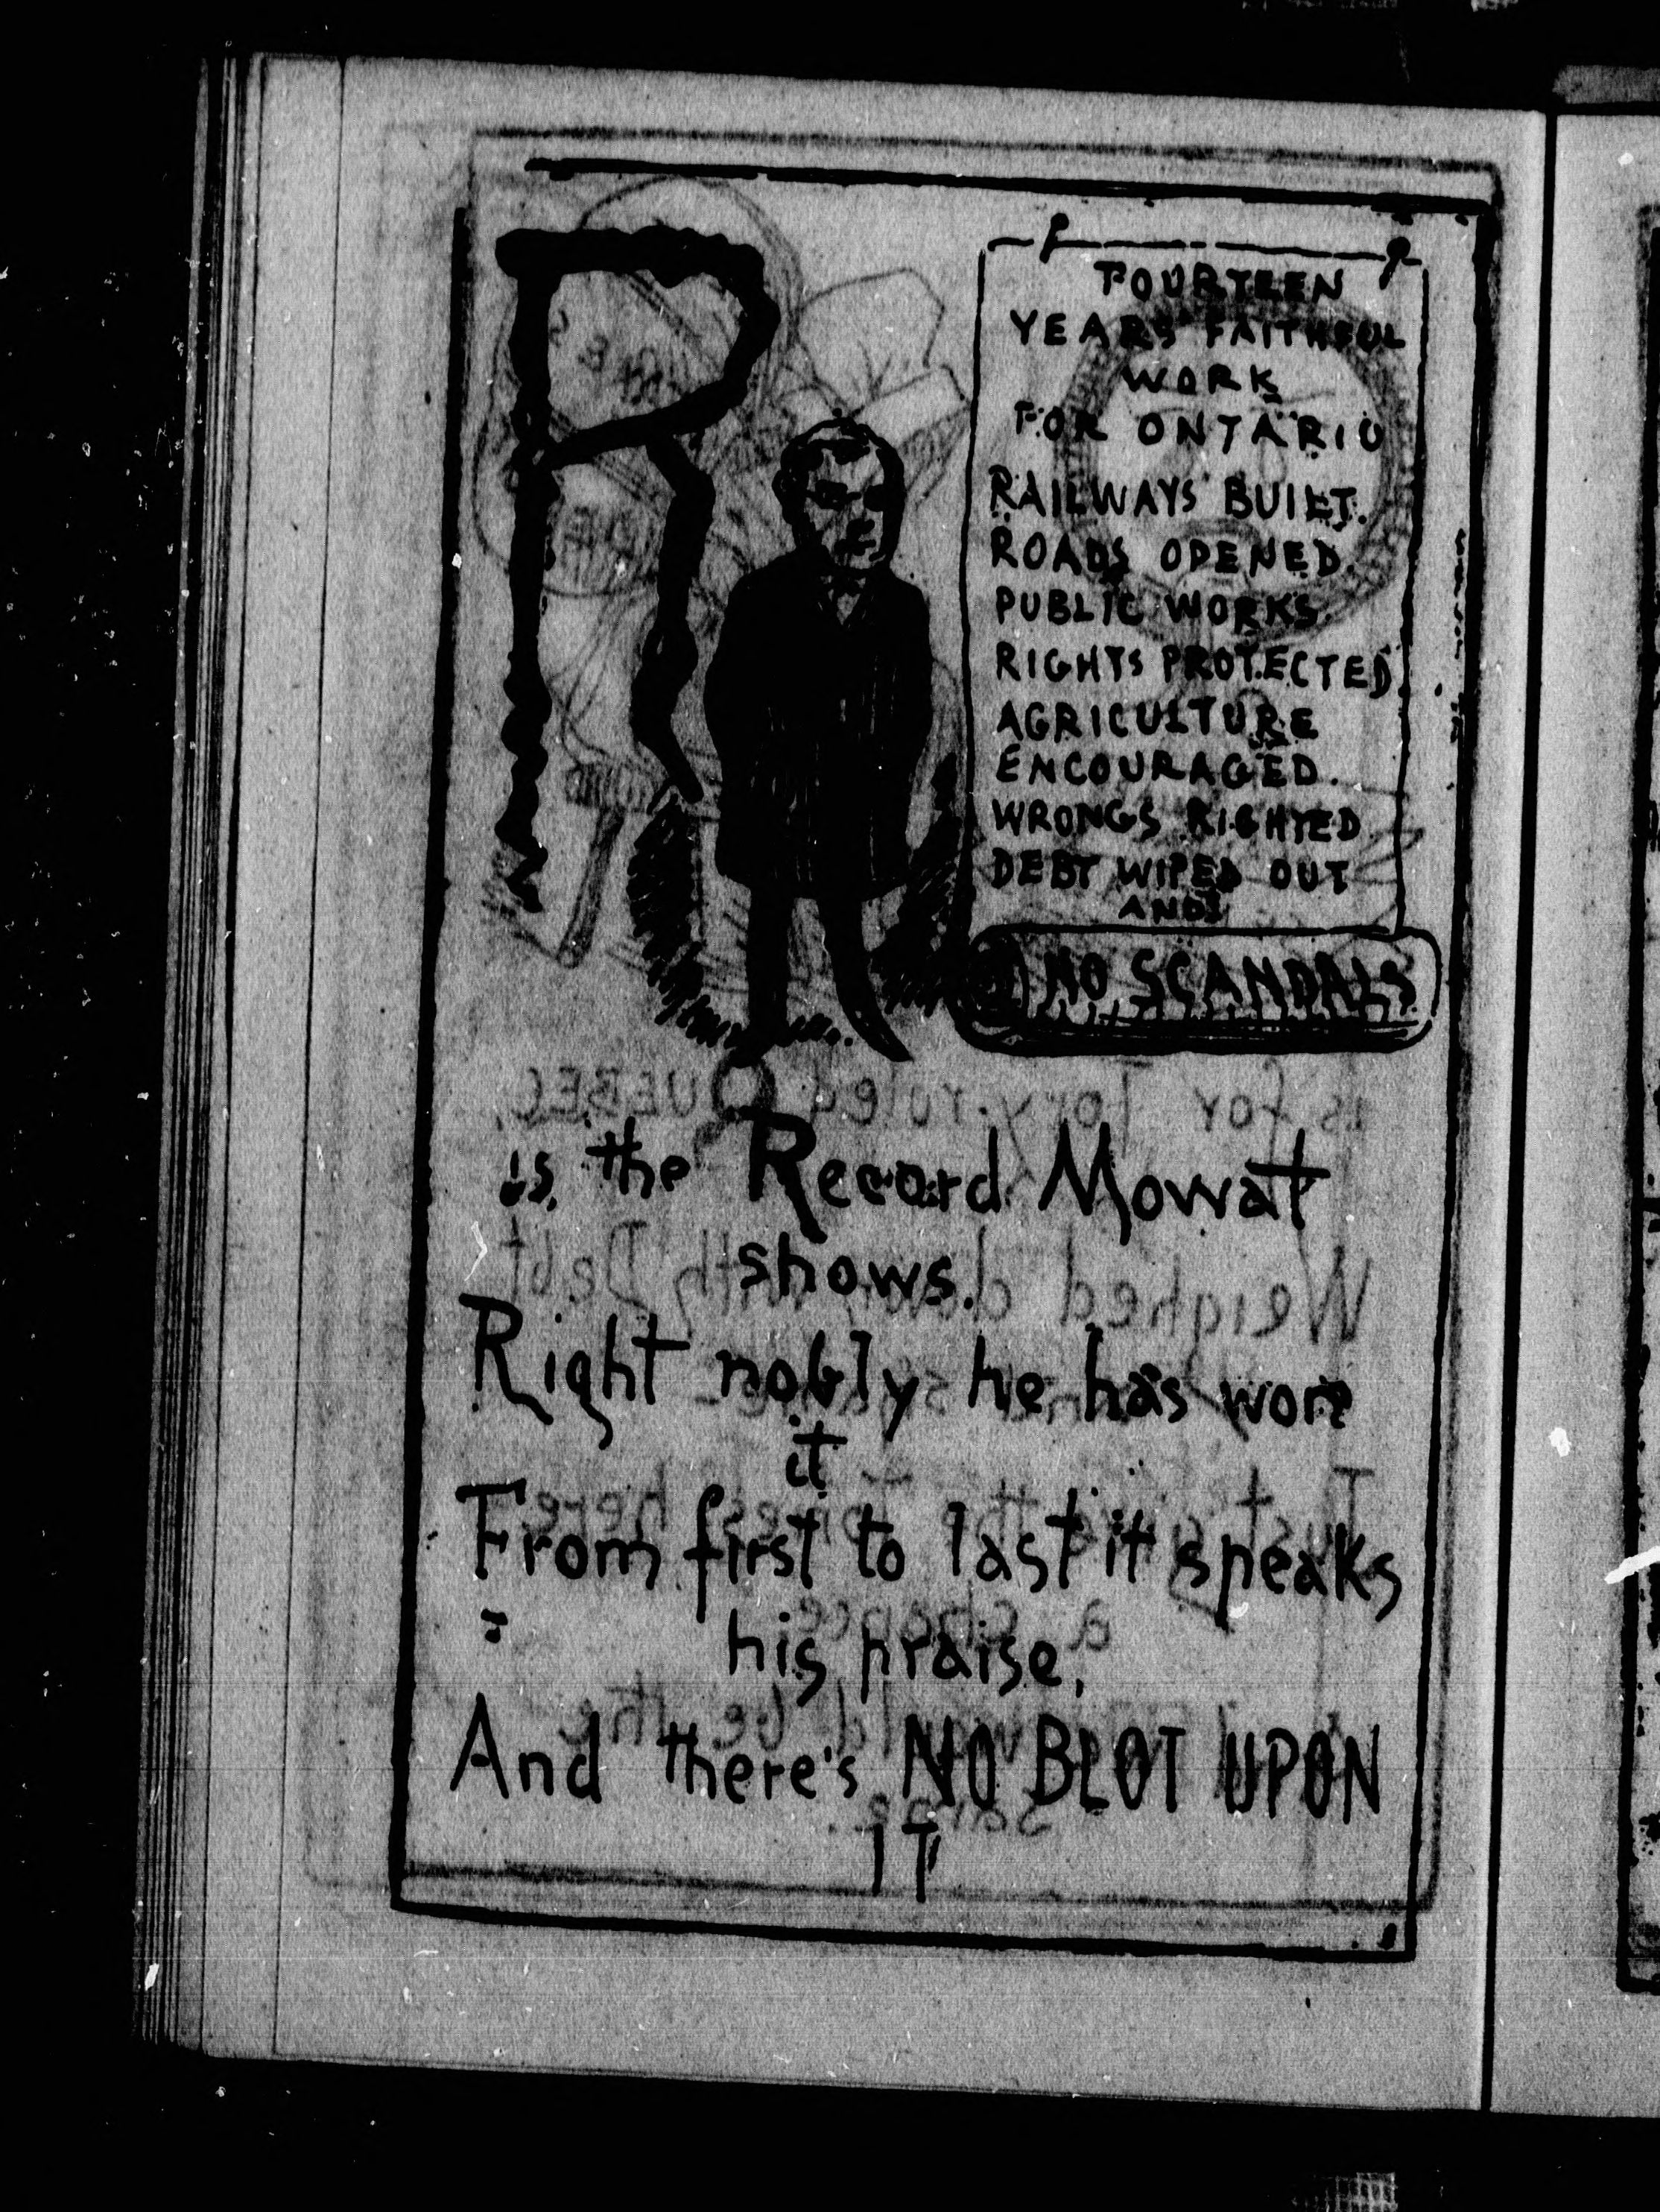 R
FOURTEEN
YEARS' FAITHFUL
WORK
FOR ONTARIO
RAILWAYS BUILT.
ROADS OPENED.
PUBLIC WORKS.
RIGHTS PROTECTED.
AGRICULTURE
ENCOURAGED.
WRONGS RIGHTED
DEBT WIPED OUT
AND
NO SCANDALS
is the Record Mowat
shows.
Right nobly he has won
it
From first to last it speaks
his praise,
And there's NO BLOT UPON
IT